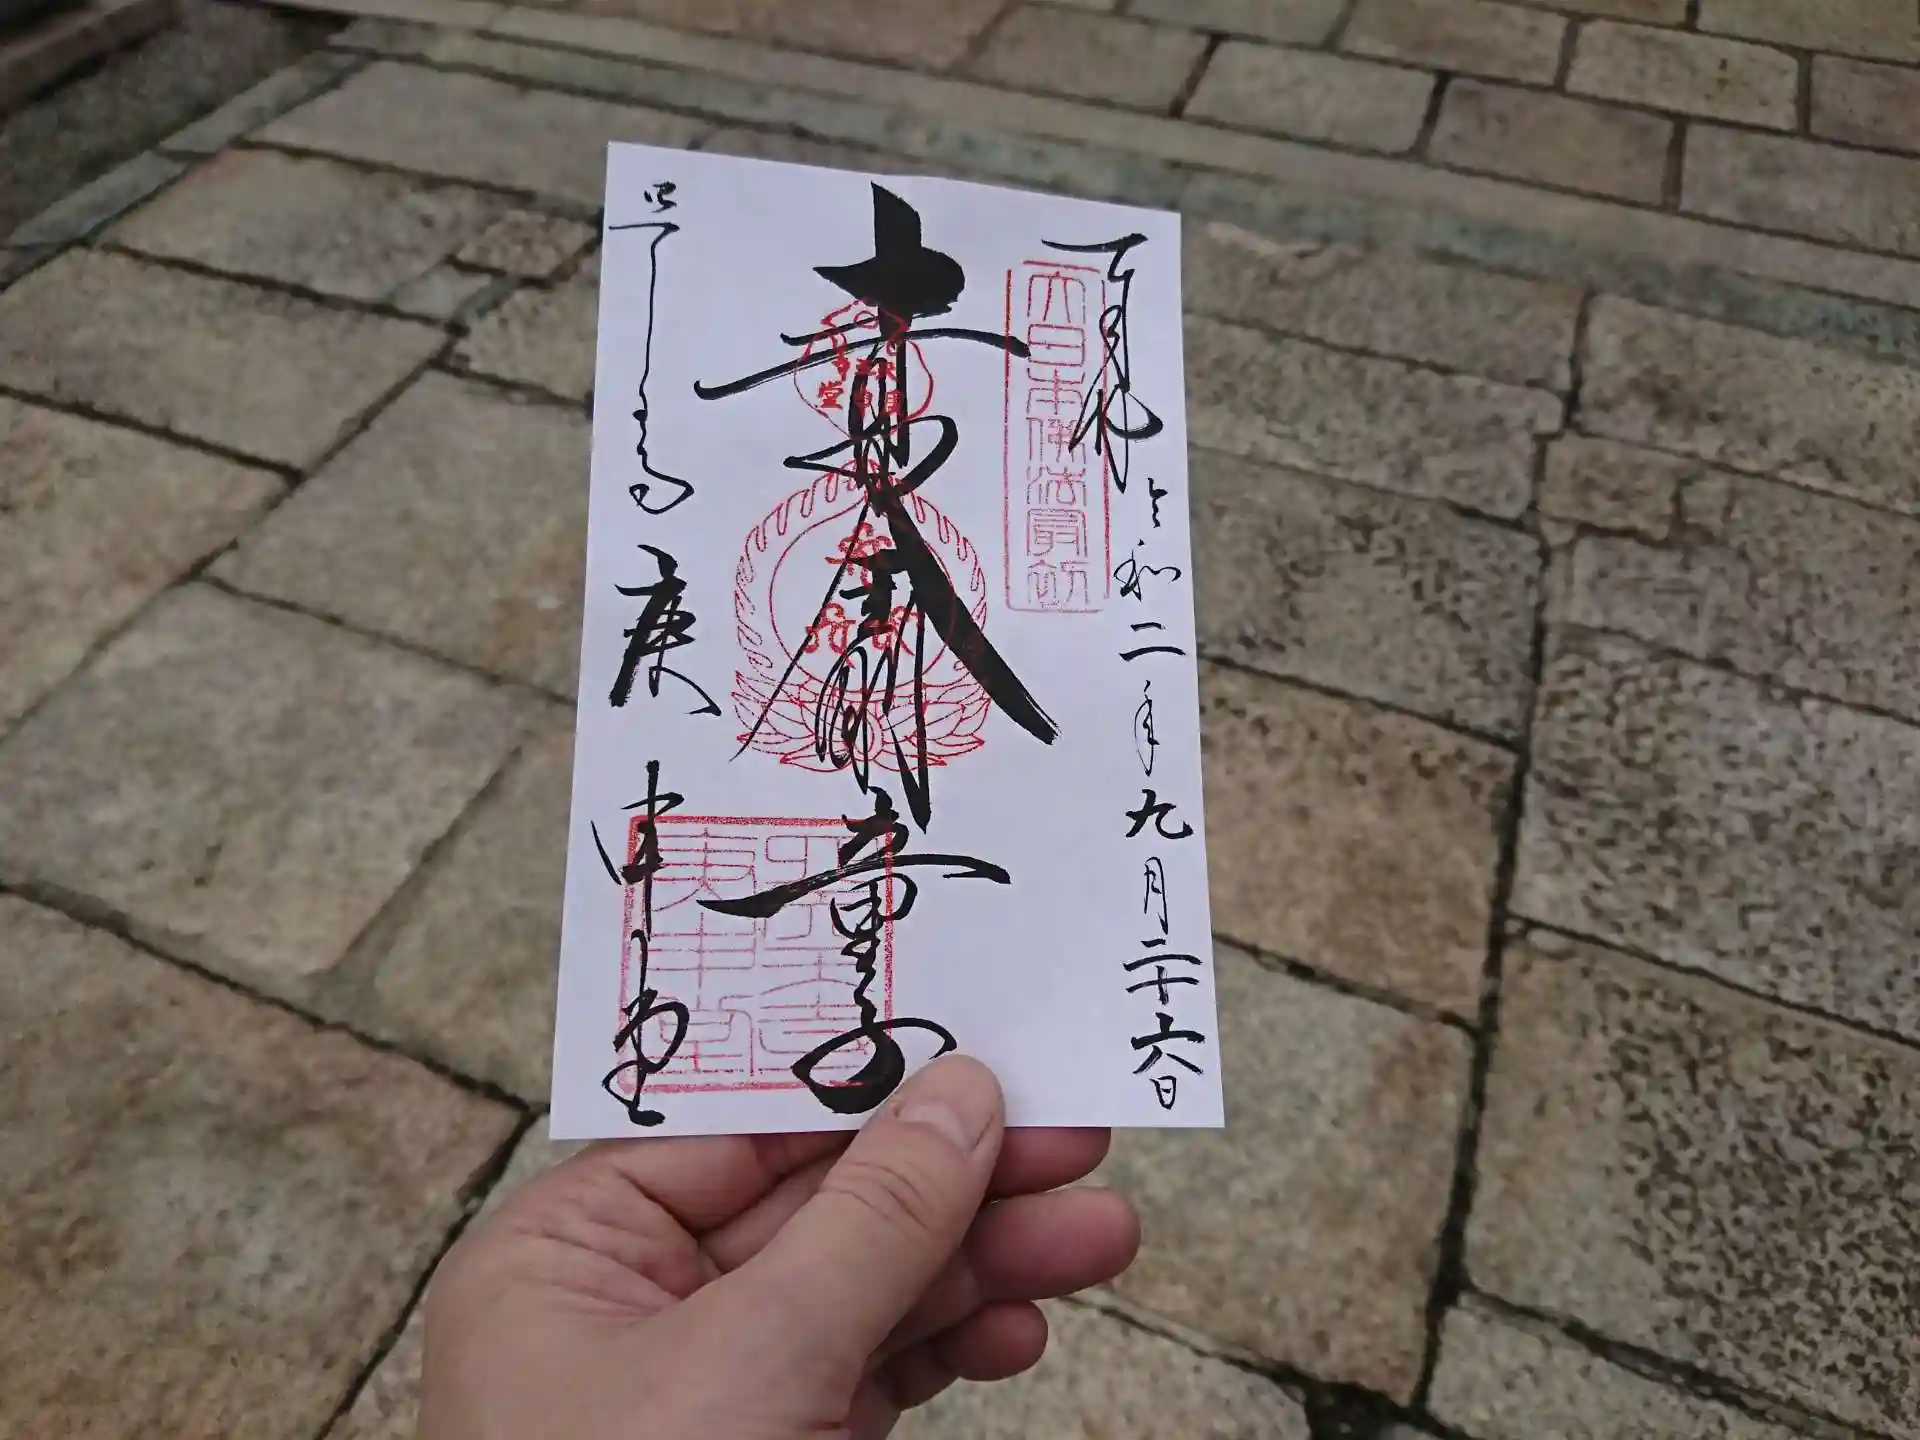 奉拝
令和二年九月二十六日
大日本佛法最初
青面金剛童子
四天王寺
庚申堂